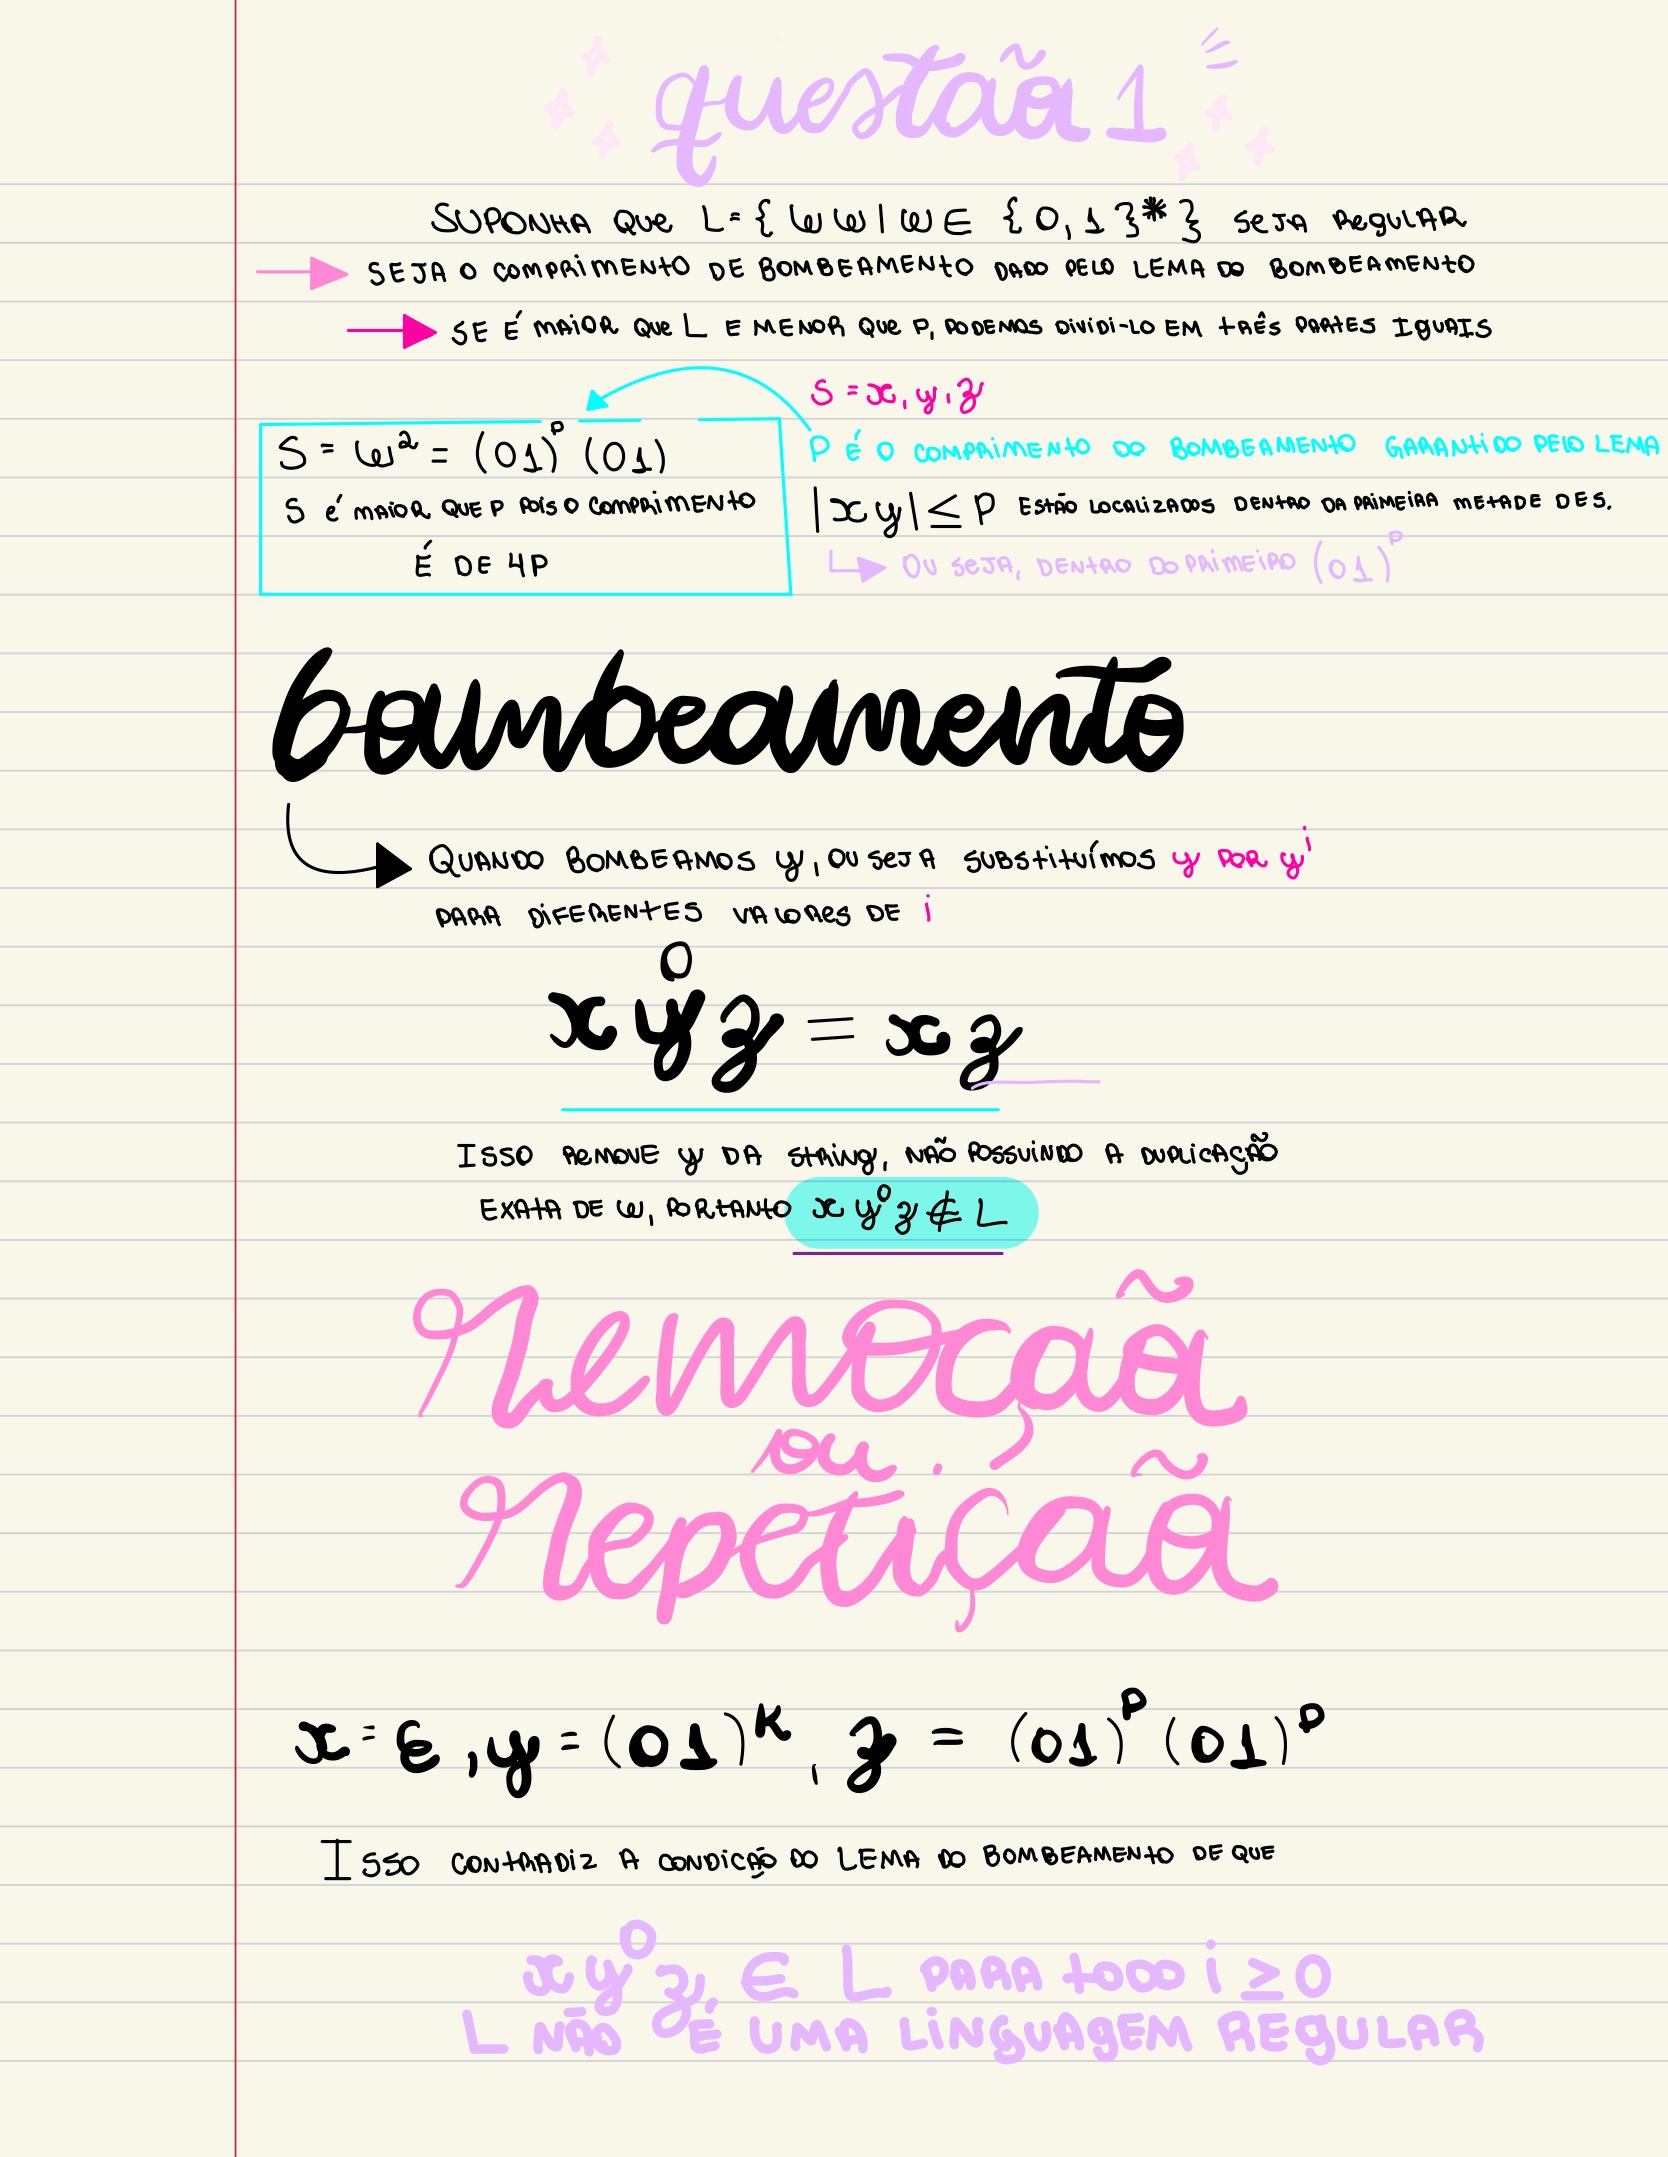 questão 1
SUPONHA QUE L = { ωω | ω ∈ {0,1}* } SEJA REGULAR
SEJA O COMPRIMENTO DE BOMBEAMENTO DADO PELO LEMA DO BOMBEAMENTO
SE É MAIOR QUE L E MENOR QUE P, PODEMOS DIVIDI-LO EM TRÊS PARTES IGUAIS
S = x, y, z
S = ω² = (01)ᵖ (01)
P É O COMPRIMENTO DO BOMBEAMENTO GARANTIDO PELO LEMA
S é MAIOR QUE P POIS O COMPRIMENTO
É DE 4P
|xy| ≤ P ESTÃO LOCALIZADOS DENTRO DA PRIMEIRA METADE DE S.
OU SEJA, DENTRO DO PRIMEIRO (01)ᵖ
bombeamento
QUANDO BOMBEAMOS y, OU SEJA SUBSTITUÍMOS y POR yⁱ
PARA DIFERENTES VALORES DE i
xy⁰z = xz
ISSO REMOVE y DA STRING, NÃO POSSUINDO A DUPLICAÇÃO
EXATA DE ω, PORTANTO xy⁰z ∉ L
Remoção
ou
Repetição
x = ε, y = (01)ᵏ, z = (01)ᵖ (01)ᵖ
ISSO CONTRADIZ A CONDIÇÃO DO LEMA DO BOMBEAMENTO DE QUE
xy⁰z ∈ L PARA TODO i ≥ 0
L NÃO É UMA LINGUAGEM REGULAR